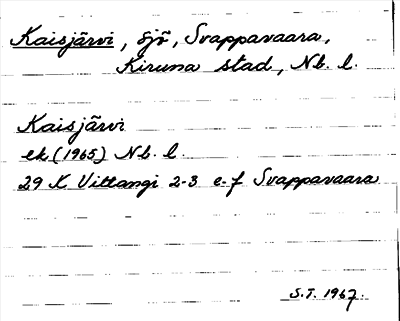 Kaisjärvi, sjö, Svappavaara,
Kiruna stad, Nb. l.
Kaisjärvi
ek (1965) Nb. l.
29 K Vittangi 2-3 e-f Svappavaara
S.T. 1967.